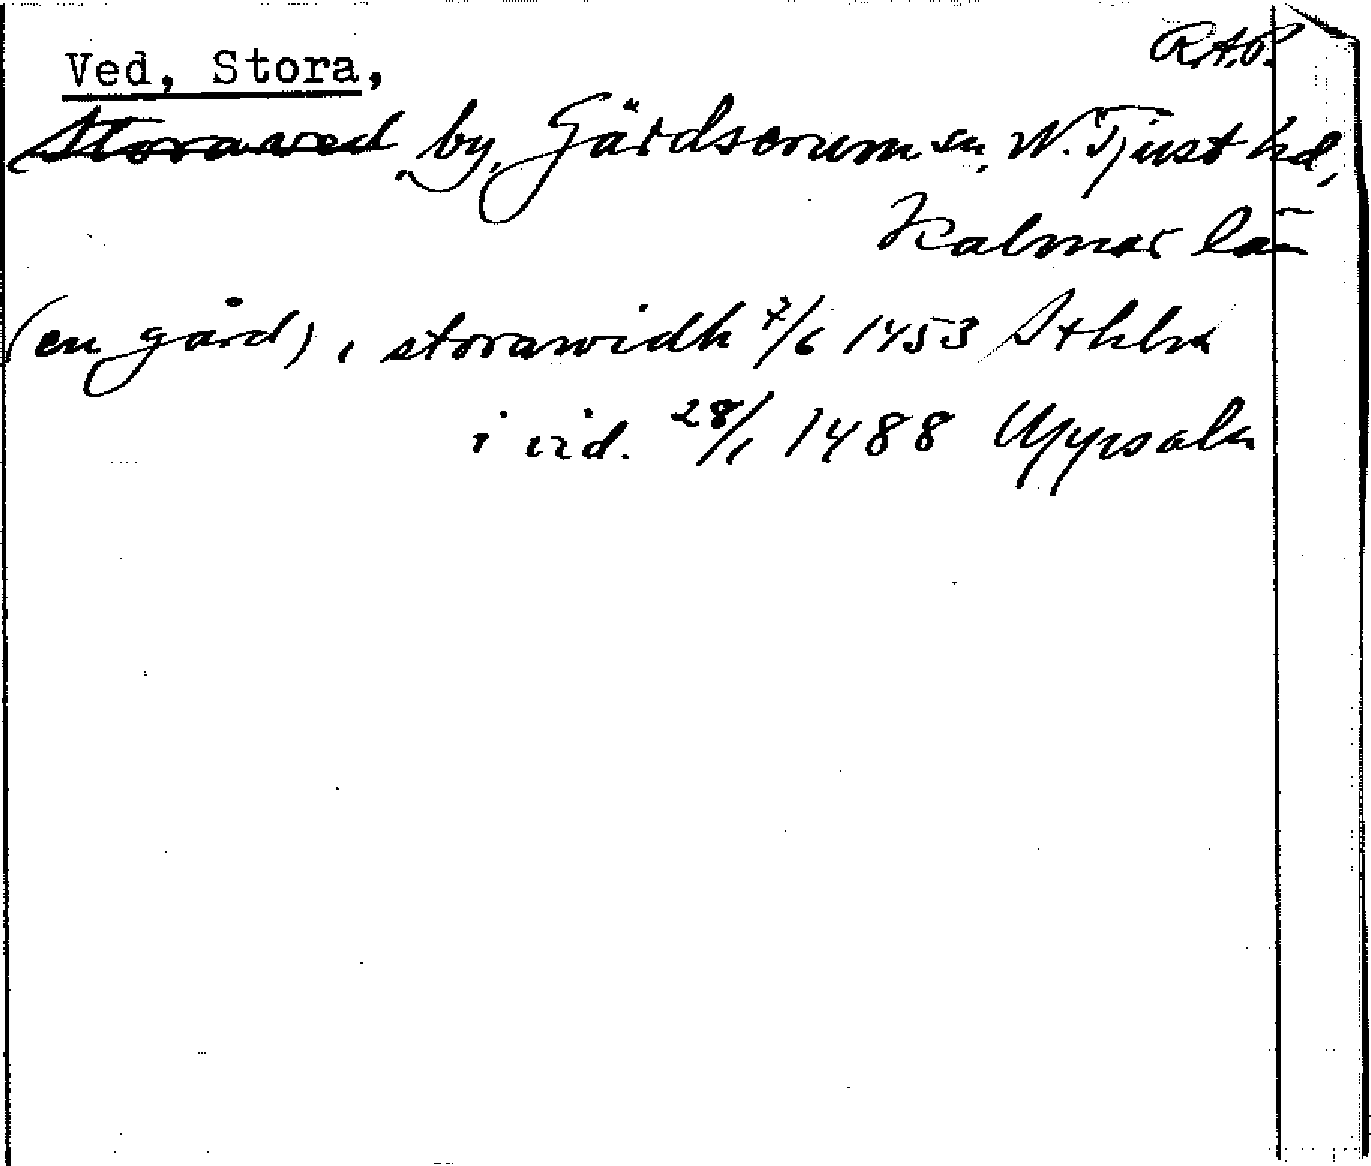 Ved, Stora, R.A.P.
Storaved by, Gärdserum sn, N. Tjust hd,
Kalmar län
(en gård), i storawidh 7/6 1453 Sthlm
i vid. 28/1 1488 Uppsala